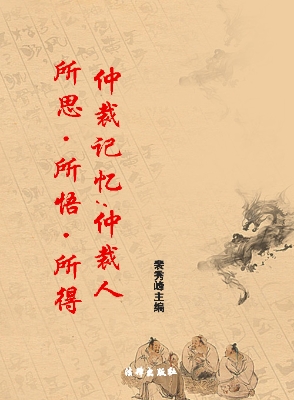 仲裁记忆:仲裁人
所思·所悟·所得
裴秀峰主编
法律出版社